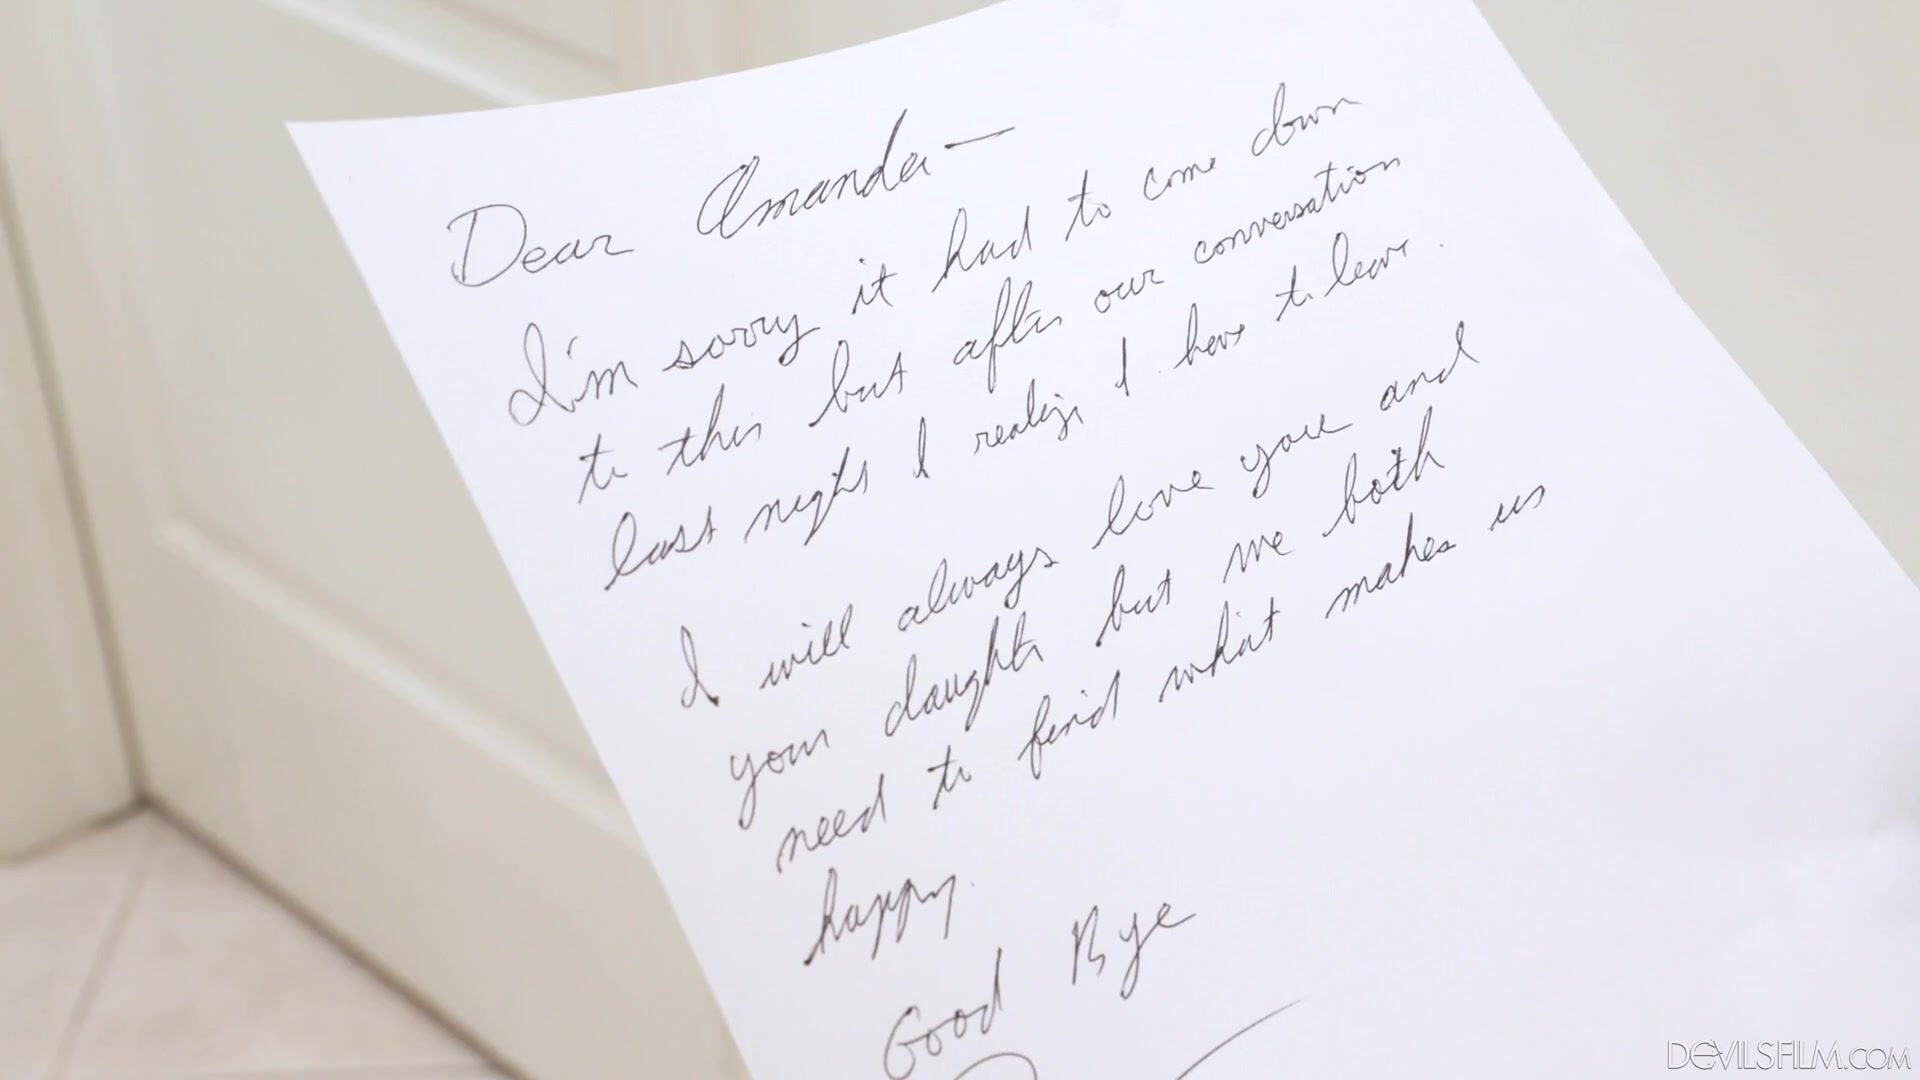 Dear Amanda —
I'm sorry it had to come down
to this but after our conversation
last night I realize I have to leave.
I will always love you and
your daughter but we both
need to find what makes us
happy.
Good Bye
DEVILSFILM.COM